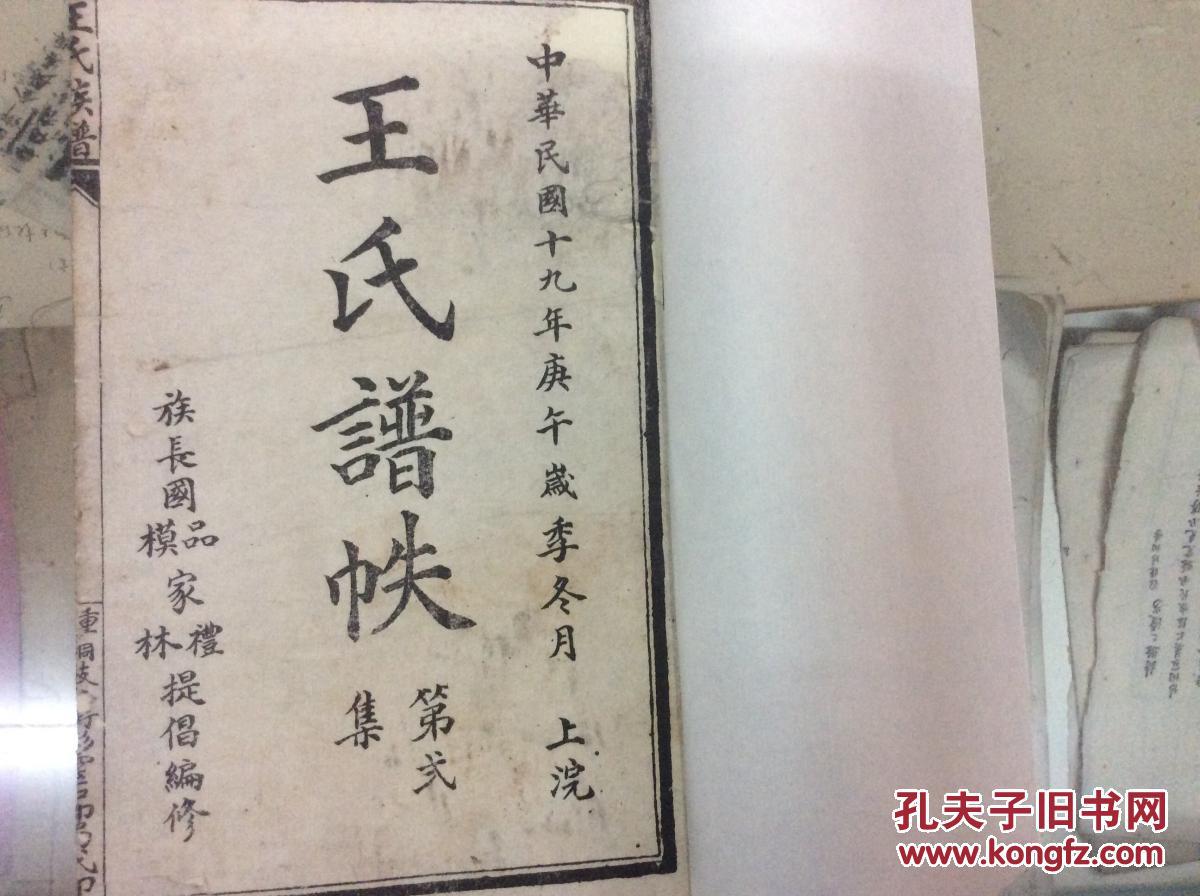 中華民國十九年庚午歲季冬月 上浣
王氏譜帙
第弍集
族長國品模家禮林提倡編修
王氏族譜
孔夫子旧书网
www.kongfz.com